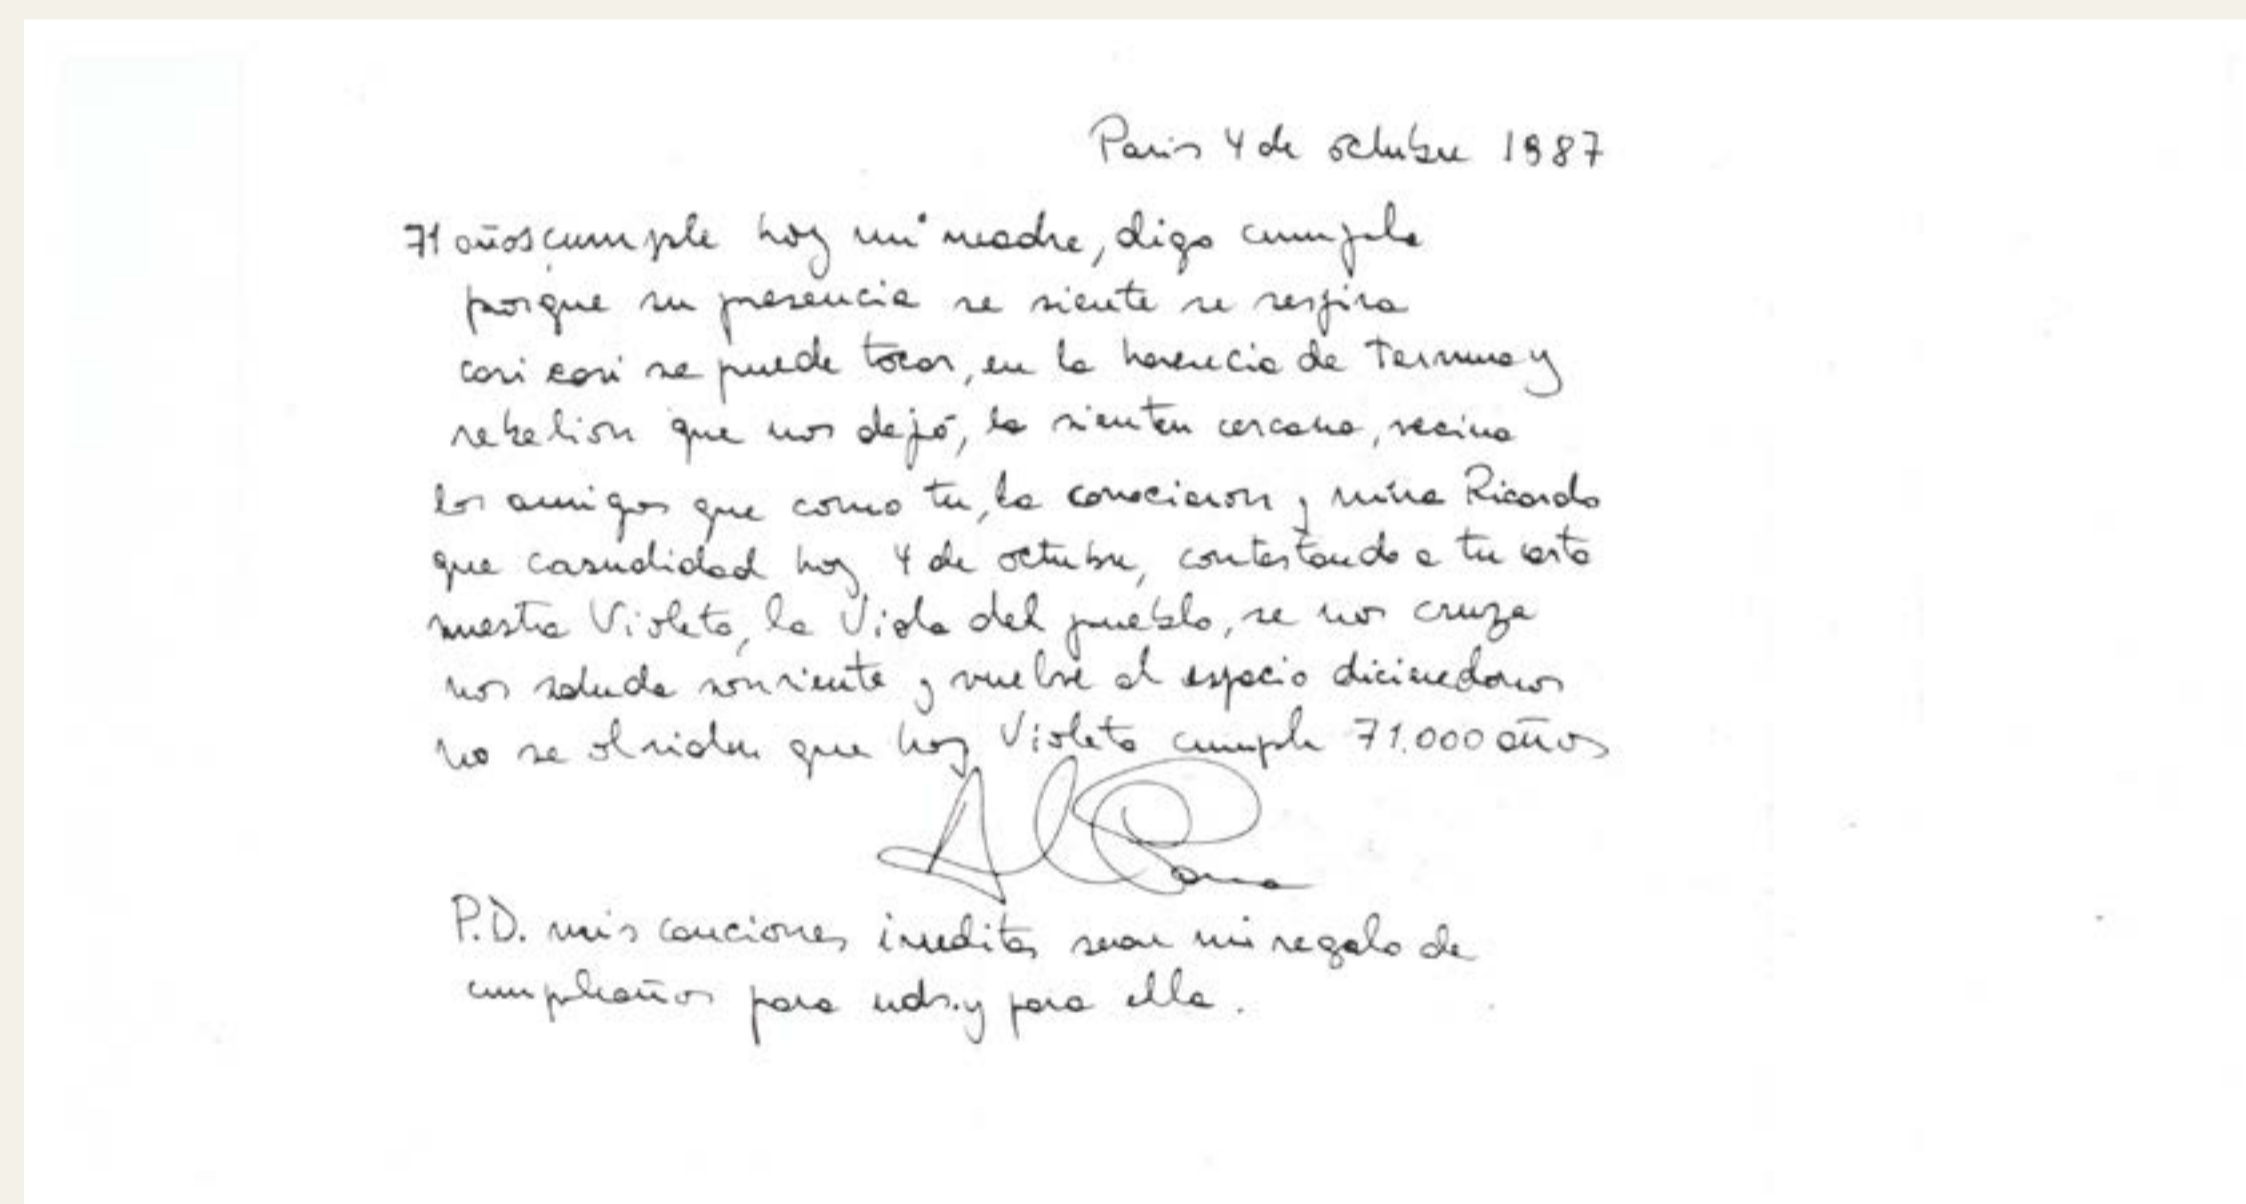 Paris 4 de octubre 1987
71 años cumple hoy mi madre, digo cumple
porque su presencia se siente se respira
casi casi se puede tocar, en la herencia de Ternura y
rebelion que nos dejó, la sienten cercana, vecina
los amigos que como tu, la conocieron y mira Ricardo
que casualidad hoy 4 de octubre, contestando a tu carta
nuestra Violeta, la Viola del pueblo, se nos cruza
nos saluda sonriente y vuelve al espacio diciendonos
no se olviden que hoy Violeta cumple 71.000 años
P.D. mis canciones ineditas seran mi regalo de
cumpleaños para uds. y para ella.